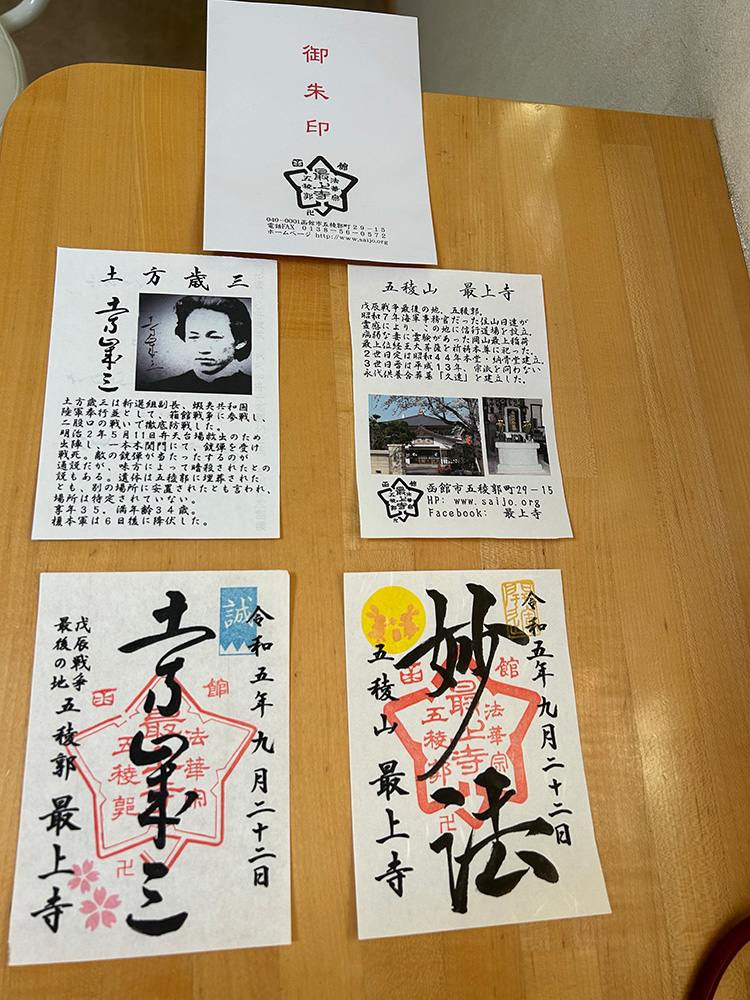 御朱印
函館
法華宗
最上寺
五稜郭
卍
040-0001函館市五稜郭町29-15
電話FAX 0138-56-0572
ホームページ http://www.saijo.org
土方歳三
土方歳三
土方歳三は新選組副長、蝦夷共和国
陸軍奉行並として、箱館戦争に参戦し、
二股口の戦いで徹底防戦した。
明治2年5月11日弁天台場救出のため
出陣し、一本木関門にて、銃弾を受け
戦死。敵の銃弾が当たったするのが
通説だが、味方によって暗殺されたとの
説もある。遺体は五稜郭に埋葬された
とも、別の場所に安置されたとも言われ、
場所は特定されていない。
享年35．満年齢34歳。
榎本軍は6日後に降伏した。
五稜山 最上寺
戊辰戦争最後の地、五稜郭．
昭和7年海軍事務官だった住山日達が
霊感により、この地に信行道場を設立．
病弱な妻に霊験があった岡山最上稲荷
最上位経王大菩薩を祈祷本尊に祀った。
2世日定は昭和44年本堂・納骨堂建立．
3世日晋は平成13年、宗派を問わない
永代供養合葬墓「久遠」を建立した。
函館
法華宗
最上寺
五稜郭
卍
函館市五稜郭町29-15
HP: www.saijo.org
Facebook: 最上寺
誠
令和五年九月二十二日
土方歳三
戊辰戦争
最後の地 五稜郭 最上寺
函館
法華宗
最上寺
五稜郭
卍
令和五年九月二十二日
妙法
五稜山 最上寺
函館
法華宗
最上寺
五稜郭
卍